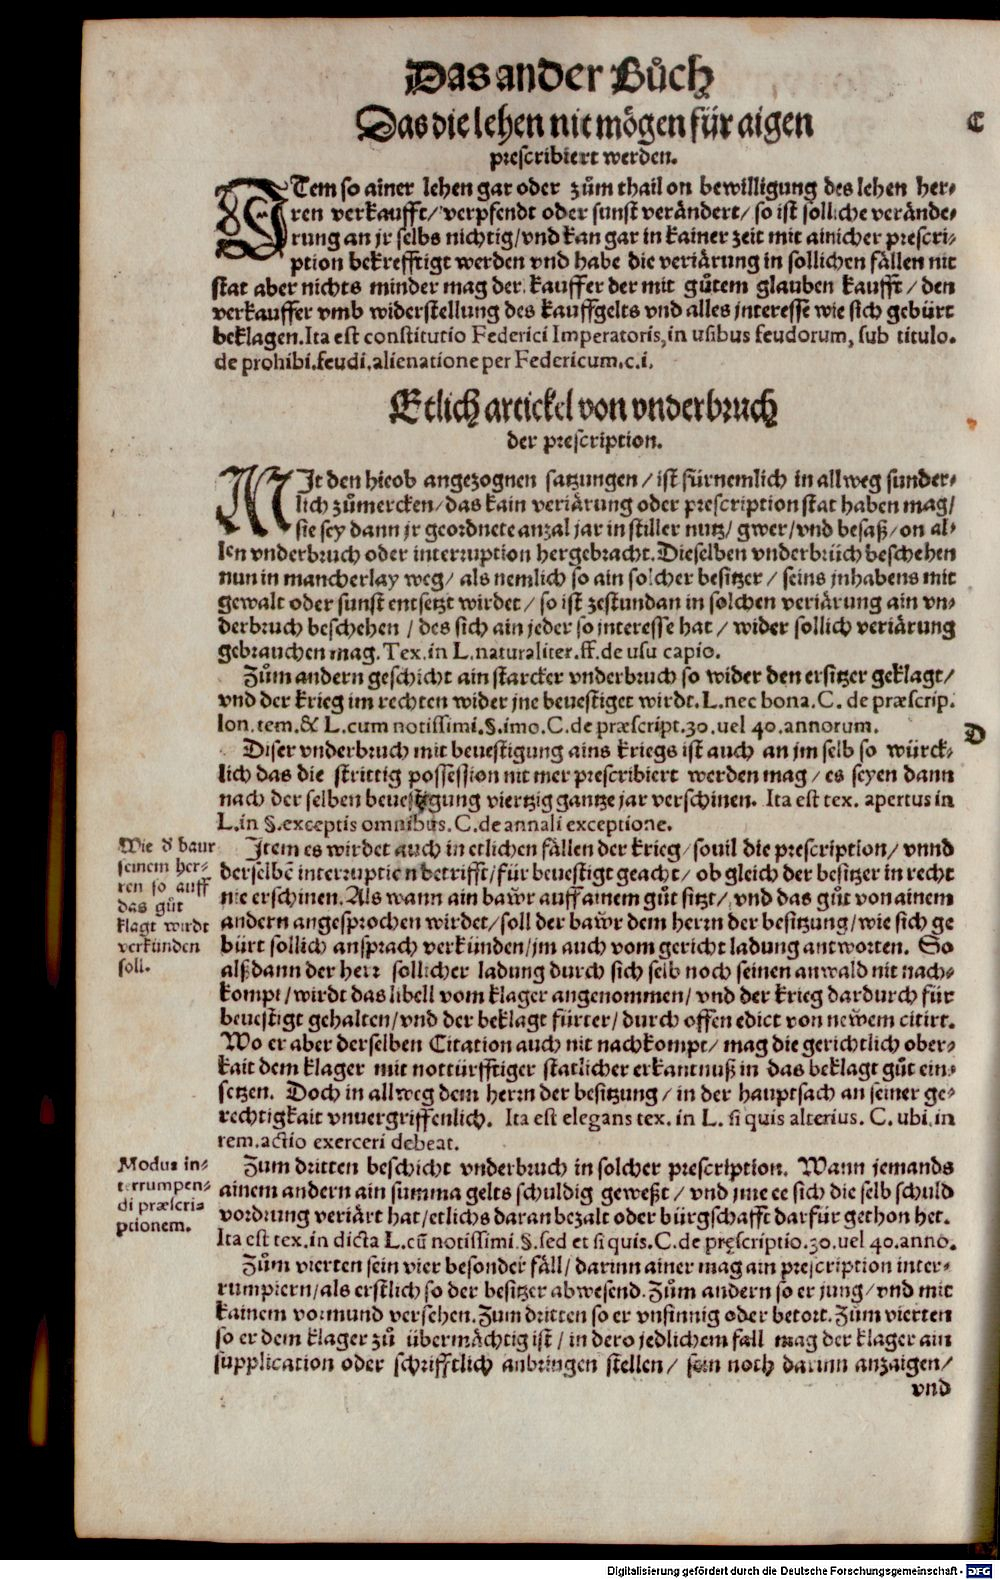 Das ander Bůch
Das die lehen nit mögen für aigen
C
prescribiert werden.
ITem so ainer lehen gar oder zům thail on bewilligung des lehen her-
ren verkaufft/ verpfendt oder sunst verändert/ so ist solliche verände-
rung an jr selbs nichtig/ vnd kan gar in kainer zeit mit ainicher prescri-
ption bekrefftigt werden vnd habe die veriärung in sollichen fällen nit
stat aber nichts minder mag der kauffer der mit gůtem glauben kaufft / den
verkauffer vmb widerstellung des kauffgelts vnd alles jnteresse wie sich gebürt
beklagen. Ita est constitutio Federici Imperatoris, in usibus feudorum, sub titulo.
de prohibi.feudi.alienatione per Federicum.c.i.
Etlich artickel von vnderbruch
der prescription.
MIt den hieob angezognen satzungen / ist fürnemlich in allweg sunder-
lich zůmercken/ das kain veriärung oder prescription stat haben mag/
sie sey dann jr geordnete anzal jar in stiller nutz/ gwer/ vnd besaß/ on al-
len vnderbruch oder interruption hergebracht. Dieselben vnderbrüch beschehen
nun in mancherlay weg/ als nemlich so ain solcher besitzer / seins jnhabens mit
gewalt oder sunst entsetzt wirdet / so ist zestundan in solchen veriärung ain vn-
derbruch beschehen / des sich ain jeder so jnteresse hat / wider sollich veriärung
gebrauchen mag. Tex. in L. naturaliter. ff. de usu capio.
Zům andern geschicht ain starcker vnderbruch so wider den ersitzer geklagt/
vnd der krieg im rechten wider jne beuestiget wirdt. L. nec bona. C. de præscrip.
lon. tem. & L. cum notissimi. §. imo. C. de præscript. 30. uel 40. annorum.
D
Diser vnderbruch mit beuestigung ains kriegs ist auch an jm selb so würck-
lich das die strittig possession nit mer prescribiert werden mag / es seyen dann
nach der selben beuestigung viertzig gantze jar verschinen. Ita est tex. apertus in
L. in §. exceptis omnibus. C. de annali exceptione.
Wie d baur
seinem her-
ren so auff
das gůt
klagt wirdt
verkünden
soll.
Item es wirdet auch in etlichen fällen der krieg/ souil die prescription/ vnnd
derselbē interruption betrifft/ für beuestigt geacht/ ob gleich der besitzer in recht
nie erschinen. Als wann ain baw̃r auff ainem gůt sitzt/ vnd das gůt von ainem
andern angesprochen wirdet/ soll der baw̃r dem herrn der besitzung/ wie sich ge
bürt sollich ansprach verkünden/ jm auch vom gericht ladung antworten. So
alßdann der herr sollicher ladung durch sich selb noch seinen anwald nit nach-
kompt/ wirdt das libell vom klager angenommen/ vnd der krieg dardurch für
beuestigt gehalten/ vnd der beklagt fürter/ durch offen edict von new̃em citirt.
Wo er aber derselben Citation auch nit nachkompt/ mag die gerichtlich ober-
kait dem klager mit notturfftiger statlicher erkantnuß in das beklagt gůt ein-
setzen. Doch in allweg dem herrn der besitzung / in der hauptsach an seiner ge-
rechtigkait vnuergriffenlich. Ita est elegans tex. in L. si quis alterius. C. ubi.in
rem. actio exerceri debeat.
Modus in-
terrumpen-
di præscri-
ptionem.
Zum dritten beschicht vnderbruch in solcher prescription. Wann jemands
ainem andern ain summa gelts schuldig geweßt / vnd jme ee sich die selb schuld
vordrung veriärt hat/ etlichs daran bezalt oder bürgschafft darfür gethon het.
Ita est tex. in dicta L. cū notissimi. §. sed et si quis. C. de pręscriptio. 30. uel 40. anno.
Zům vierten sein vier besonder fäll/ darinn ainer mag ain prescription inter-
rumpiern/ als erstlich so der besitzer abwesend. Zům andern so er jung/ vnd mit
kainem vormund versehen. Zum dritten so er vnsinnig oder betort. Zům vierten
so er dem klager zů übermächtig ist / in dero jedlichem fall mag der klager ain
supplication oder schrifftlich anbringen stellen/ sein noch darinn anzaigen/
vnd
Digitalisierung gefördert durch die Deutsche Forschungsgemeinschaft - DFG